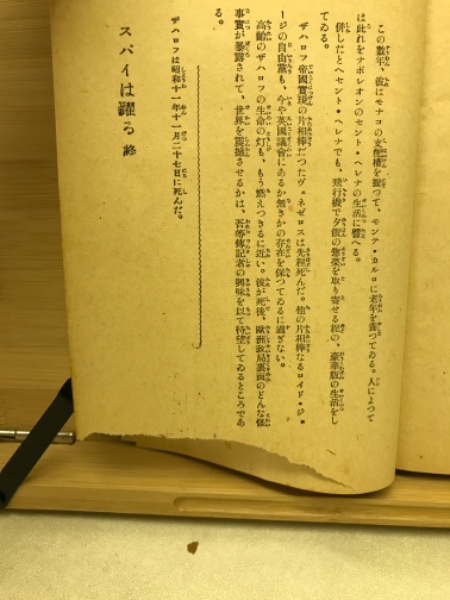 この數年、彼はモナコの支配權を握つて、モンテ・カルロに老年を養つてゐる。人によつて
は此れをナポレオンのセント・ヘレナの生活に譬へる。
併しだとへセント・ヘレナでも、飛行機で夕飯の惣菜を取り寄せる程の、豪華版の生活をし
てゐる。
ザハロフ帝國實現の片相棒だつたヴェネゼロスは先程死んだ。他の片相棒なるロイド・ジョ
ージの自由黨も、今や英國議會にあるか無きかの存在を保つてゐるに過ぎない。
高齢のザハロフの生命の灯も、もう燃えつきるに近い。彼が死後、歐洲政局裏面のどんな怪
事實が暴露されて、世界を震撼させるかは、吾等傳記者の興味を以て待望してゐるところであ
る。
ザハロフは昭和十一年十一月二十七日に死んだ。
スパイは躍る 終